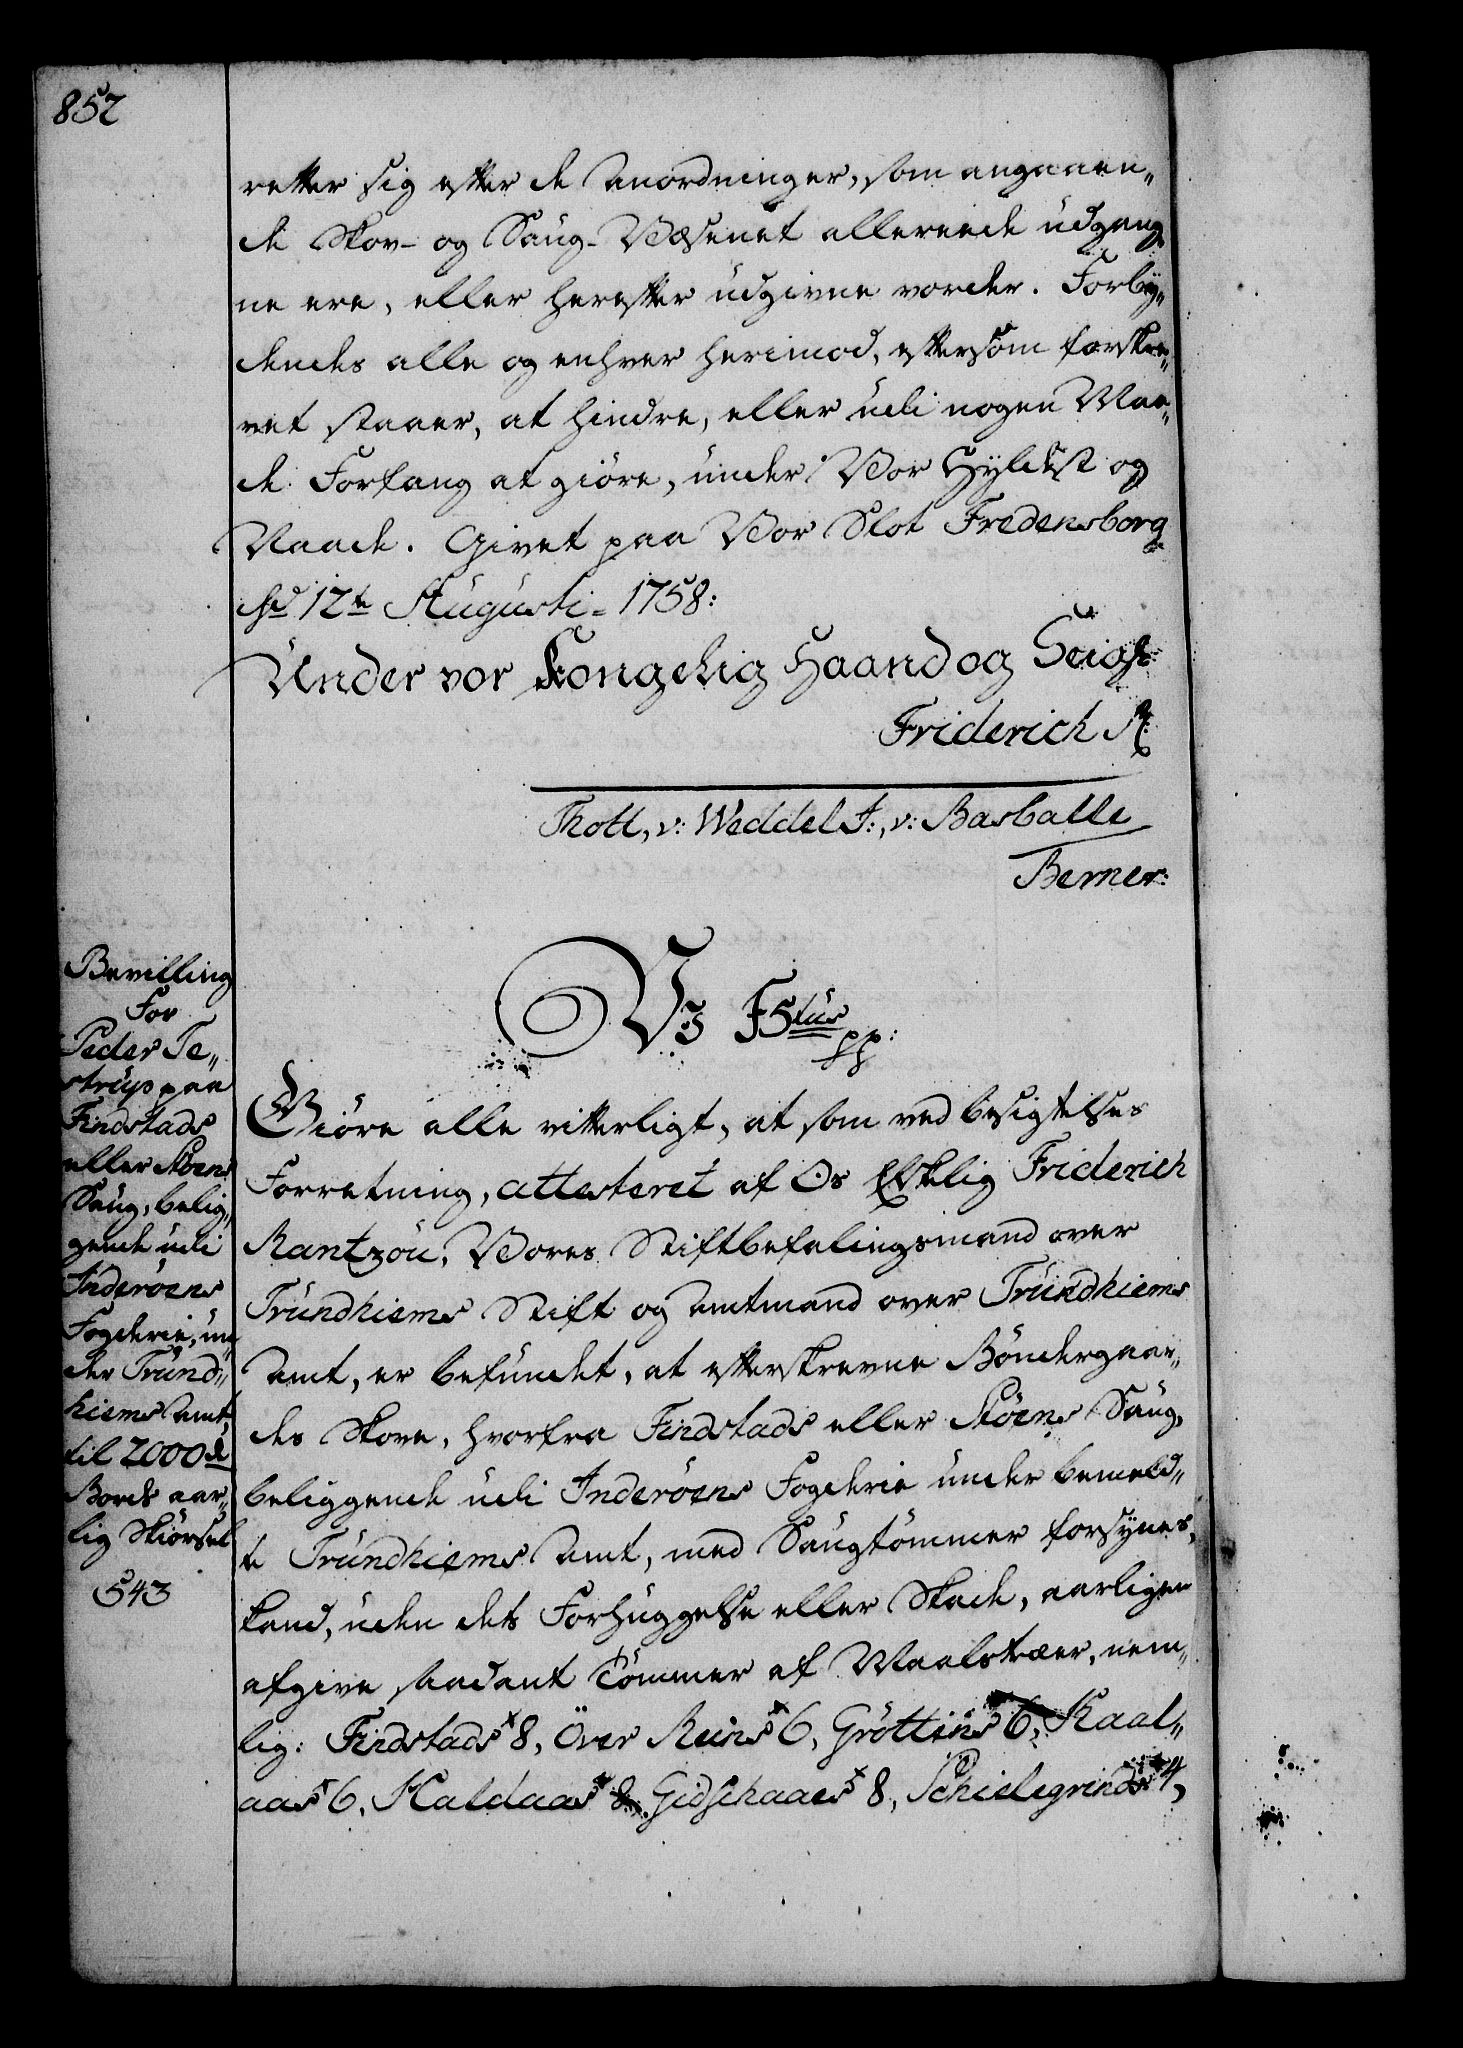 852
retter sig efter de Anordninger, som angaaen„
de Skov- og Saug-Væsenet allereede udgang„
ne ere, eller herefter udgivne vorder. Forby„
dendes alle og enhver herimod, eftersom forskre„
vet staaer, at hindre, eller udi nogen Maa„
de Forfang at giöre, under Vor Hyldest og
Naade. Givet paa Vor Slot Fredensborg
hd 12te Augusti_ 1758:
Under vor Kongelig Haand og
Friderich R:
Thott, v: Weddel J:, v: Barballe
Berner:
Bevilling
For
Peder Te„
strup paa
Findstads
eller Skoens
Saug, belig„
gende udi
Inderöens
Fogderie, un„
der Trund„
hiems Amt,
til 2000 de
Bords aar„
lig Skiörsel
543
V3 F5tus
pp:
Giöre alle vitterligt, at som ved besigtelses
Forretning, attesteret af Os Elskelig Friderich
Rantzöu, Vores Stiftbefalingsmand over
Trundhiems Stift og Amtmand over Trundhiems
Amt, er befundet, at efterskrevne Böndergaar„
des Skove, hvorfra Findstads eller Skoens Saug,
beliggende udi Inderöens Fogderie under bemeld„
te Trundhiems Amt, med Saugtömmer forsynes,
kand, uden dets Forhuggelse eller Skade, aarligen
afgive saadant Tömmer af Maalstræer, nem„
lig: Findstads 8, Över Reins 6, Gröttins 6, Kaal„
aas 6, Kaldaas 8, Gidschaaes 8, Schielegrinds 4,